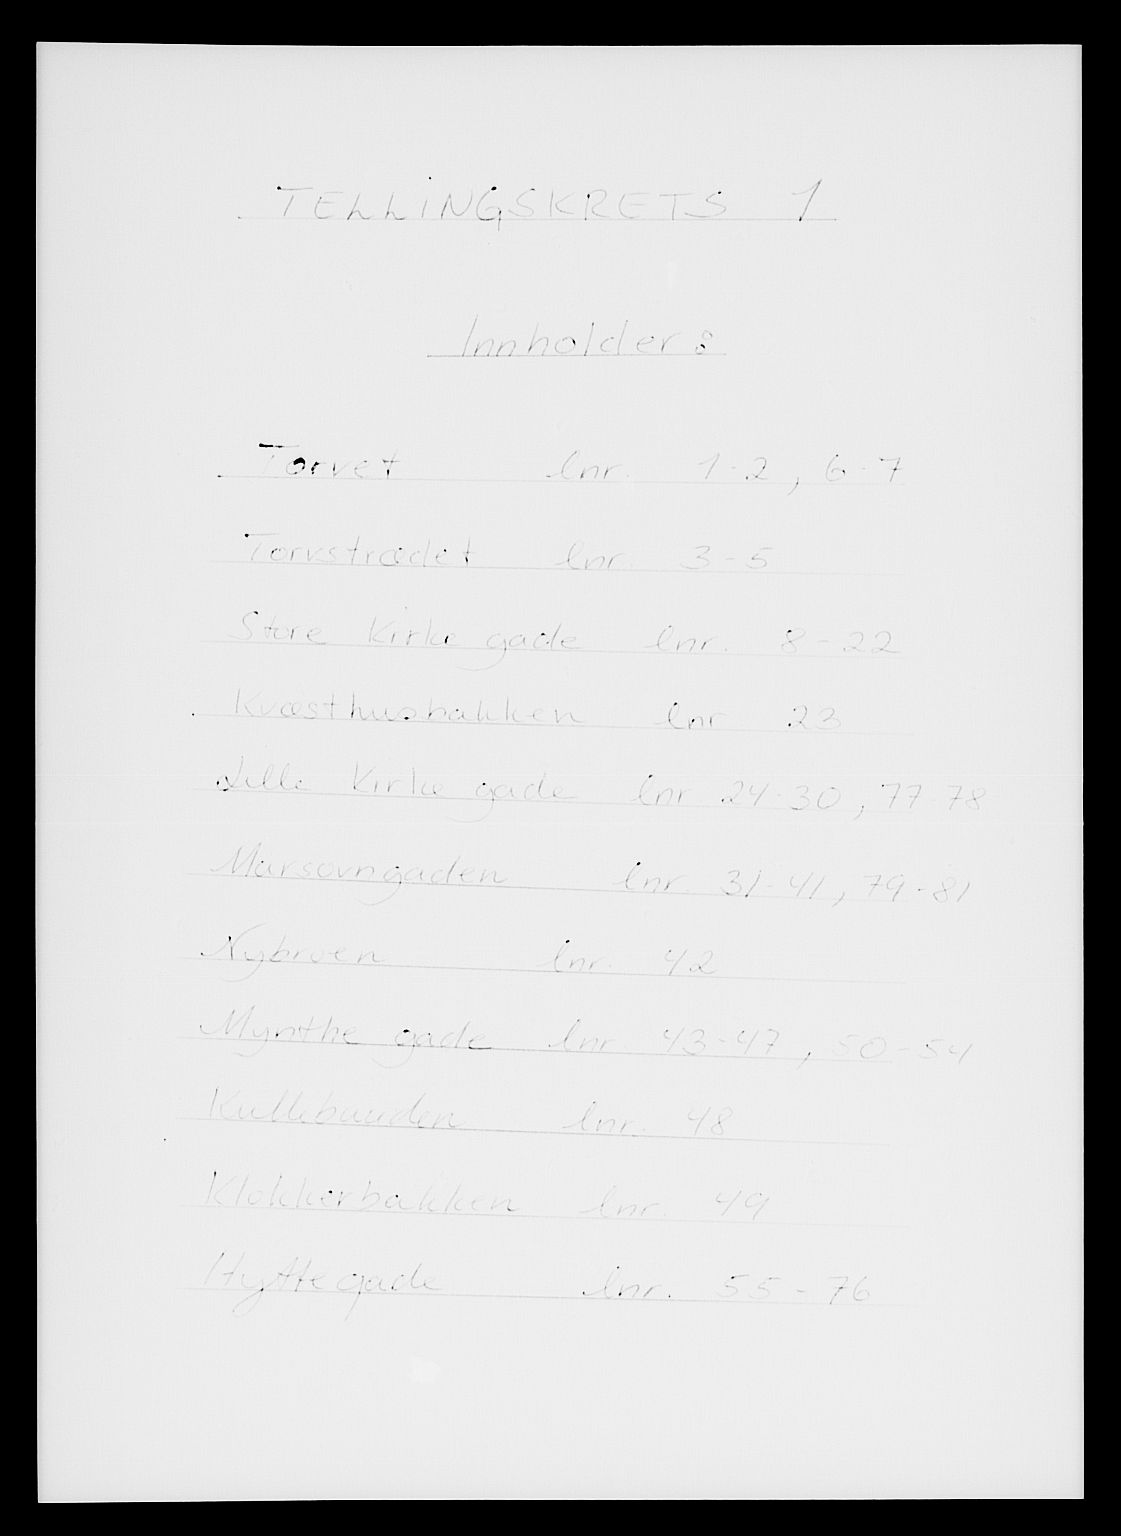 TELLINGSKRETS 1
Innholder:
Torvet lnr. 1-2, 6-7
Torvstrædet lnr. 3-5
Store Kirke gade lnr. 8-22
Kvæsthusbakken lnr 23
Lille Kirke gade lnr 24-30, 77-78
Marsovngaden lnr. 31-41, 79-81
Nybroen lnr. 42
Mynthe gade lnr 43-47, 50-54
lnr. 48
Klokkerbakken lnr. 49
Hyttegade lnr. 55-76